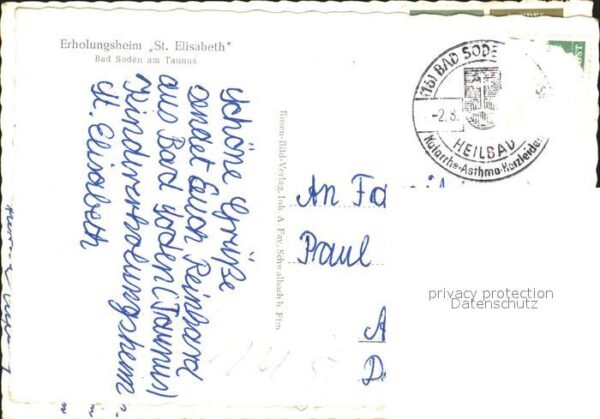 Erholungsheim „St. Elisabeth"
Bad Soden am Taunus
Schöne Grüße
sendet Euch Reinhard
aus Bad Soden (Taunus)
Kindererholungsheim
St. Elisabeth
Rosen-Bild-Verlag, Joh. A. Fay, Schwalbach b. Ffm
(16) BAD SODE
-2.8.
HEILBAD
Katarrhe-Asthma-Herzleiden
OST
An Fa
Paul
A
D
privacy protection
Datenschutz